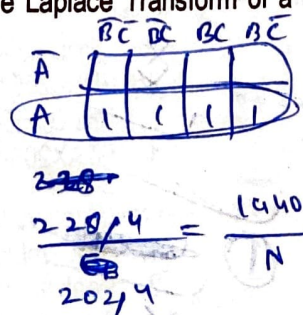 e Laplace Transform of a
B̅C̅ B̅C BC BC̅
A̅
A 1 1 1 1
228,4 = 1440
N
202,4